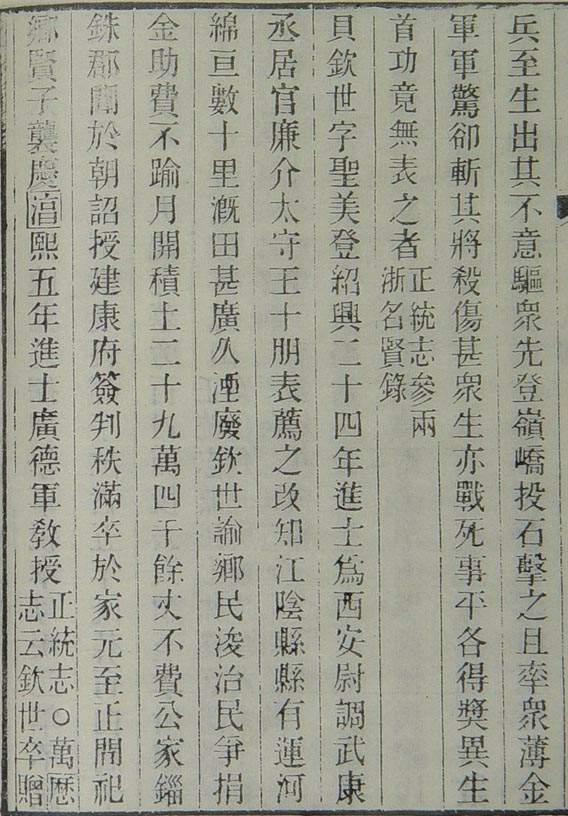 兵至生出其不意驅衆先登嶺嶠投石擊之且率衆薄金
軍軍驚卻斬其將殺傷甚衆生亦戰死事平各得獎異生
首功竟無表之者正統志參兩
浙名賢錄
貝欽世字聖美登紹興二十四年進士爲西安尉調武康
丞居官廉介太守王十朋表薦之改知江陰縣縣有運河
綿亘數十里漑田甚廣久湮廢欽世諭鄉民浚治民爭捐
金助費不踰月開積土二十九萬四千餘丈不費公家錙
銖郡聞於朝詔授建康府簽判秩滿卒於家元至正間祀
鄉賢子襲慶淳熙五年進士廣德軍敎授正統志○萬歷
志云欽世卒贈